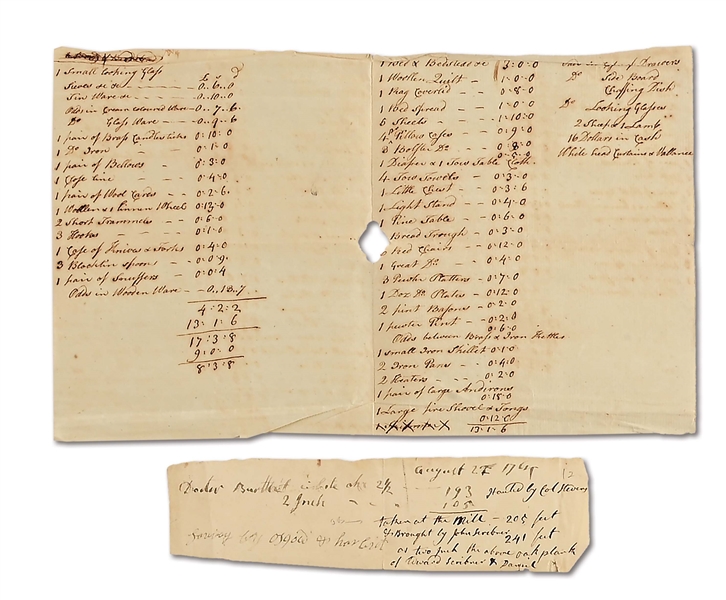 1 Small looking Glass
£ s d
Sieves &c &c 0.. 6.. 0
Tin Ware &c 0.. 10.. 0
Odds in Cream coloured Ware 0.. 7.. 6
Do Glass Ware 0.. 9.. 6
1 pair of Brass Candlesticks 0: 10: 0
1 Do Iron 0: 1: 0
1 pair of Bellows 0: 3: 0
1 Close line 0: 4: 0
1 pair of Wool Cards 0: 2: 6
1 Wollen & 1 Linnen Wheels
2 Short Trammels 0: 6: 0
3 0: 1: 0
1 Case of Knives & Forks 0: 4: 0
3 spoons 0: 0: 9
1 pair of Snuffers 0: 0: 4
Odds in Wooden Ware
4: 2: 2
13: 1: 6
17: 3: 8
9: 0: 0
8: 3: 8
1 Bed & Bedstead &c 3: 0: 0
1 Woollen Quilt 1: 0: 0
1 Rag Coverlid 0: 8: 0
1 Bed Spread 1: 0: 0
6 Sheets 1: 10: 0
Pillow Cases 0: 9: 0
3 Bolster Do 0: 8: 0
1 Diaper & 1 Tow Table Cloth
4 Tow Towels 0: 3: 0
1 Little Chest 0: 3: 6
1 Light Stand 0: 4: 0
1 Pine Table 0: 6: 0
1 Bread Trough 0: 3: 0
Red Chairs 0: 12: 0
1 Great Do 0: 4: 0
3 Pewter Platters 0: 7: 0
1 Doz Do Plates 0: 12: 0
2 pint Basons 0: 2: 0
1 pewter Pint 0: 2: 0
0: 6: 0
Odds between Brass & Iron Kettles
1 small Iron Skillet 0: 1: 0
2 Iron Pans 0: 4: 0
2 Heaters 0: 2: 0
1 pair of large Andirons
0: 18: 0
1 Large fire Shovel & Tongs
0: 12: 0
13: 1: 6
of Drawers
Do Side Board
Chafing Dish
Do Looking Glasses
2 Sheep & 1 Lamb
16 Dollars in Cash
White head Curtains & Vallance
August 27
Doctor Burtlet 2½ 193 Hauled by Col Stevens
2 Inch 105
taken at the Mill - 205 feet
& Brought by John Scribner
241 feet
of two Inch the above oak plank
of Edward Scribner & Daniel